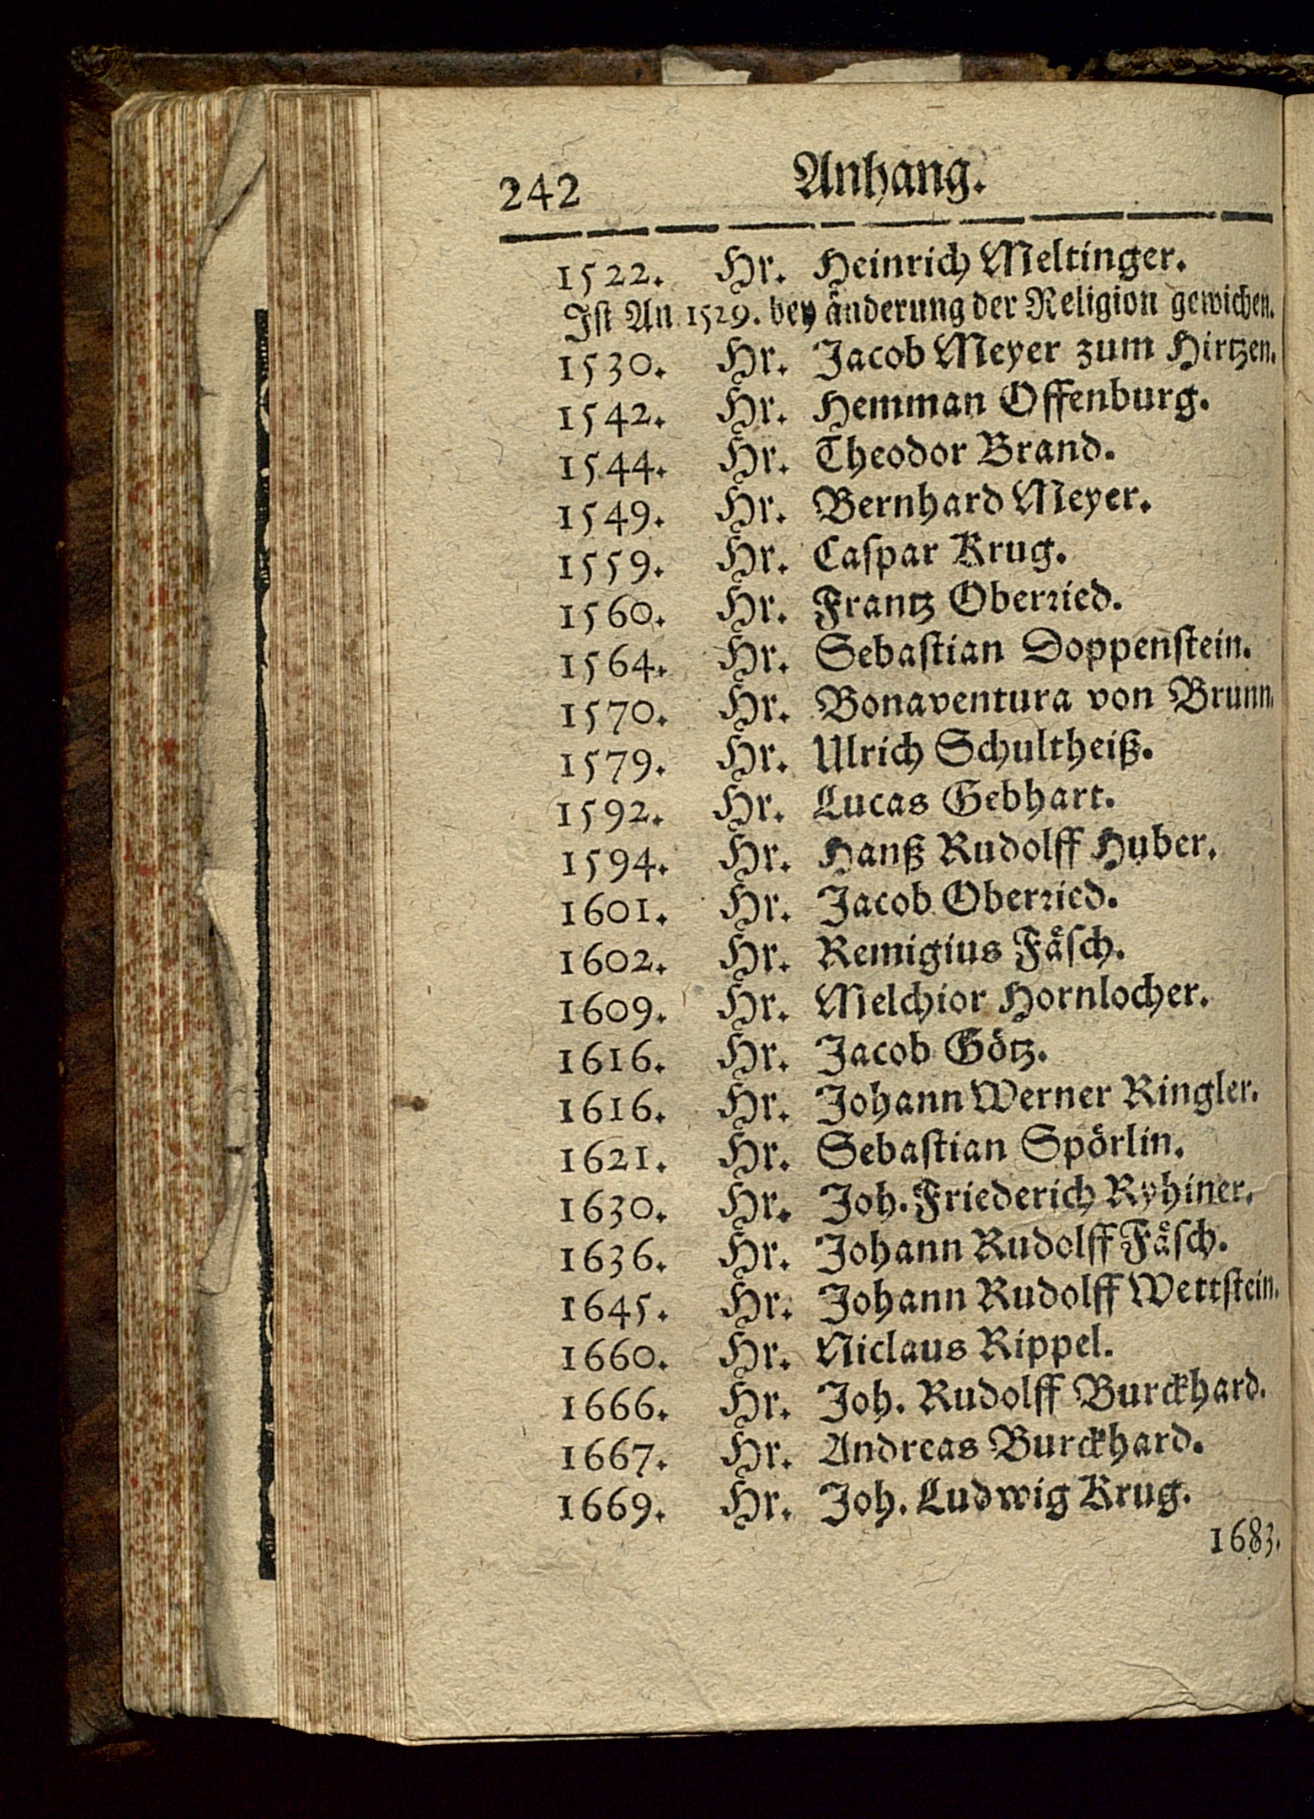 242 Anhang.
1522. Hr. Heinrich Meltinger.
Ist An 1529. bey änderung der Religion gewichen.
1530. Hr. Jacob Meyer zum Hirtzen.
1542. Hr. Hemman Offenburg.
1544. Hr. Theodor Brand.
1549. Hr. Bernhard Meyer.
1559. Hr. Caspar Krug.
1560. Hr. Frantz Oberried.
1564. Hr. Sebastian Doppenstein.
1570. Hr. Bonaventura von Brunn.
1579. Hr. Ulrich Schultheiß.
1592. Hr. Lucas Gebhart.
1594. Hr. Hanß Rudolff Huber.
1601. Hr. Jacob Oberried.
1602. Hr. Remigius Fäsch.
1609. Hr. Melchior Hornlocher.
1616. Hr. Jacob Götz.
1616. Hr. Johann Werner Ringler.
1621. Hr. Sebastian Spörlin.
1630. Hr. Joh. Friederich Ryhiner.
1636. Hr. Johann Rudolff Fäsch.
1645. Hr. Johann Rudolff Wettstein.
1660. Hr. Niclaus Rippel.
1666. Hr. Joh. Rudolff Burckhard.
1667. Hr. Andreas Burckhard.
1669. Hr. Joh. Ludwig Krug.
1683.